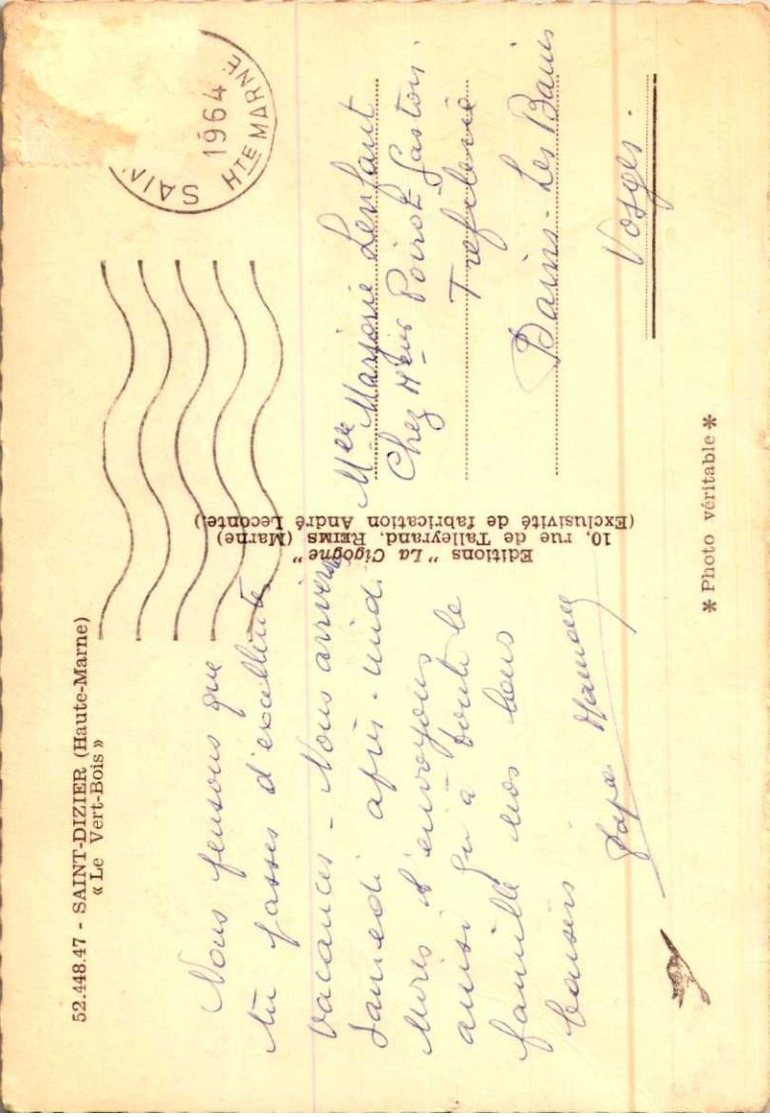 52.448.47 - SAINT-DIZIER (Haute-Marne)
« Le Vert-Bois »
Nous pensons que
tu passes d'excellentes
vacances - Nous arriverons
samedi après-midi.
t'envoyons
ainsi qu'à toute la
famille nos bons
baisers
Papa Maman
Editions " La Cigogne "
10, rue de Talleyrand, REIMS (Marne)
(Exclusivité de fabrication André Leconte.)
SAIN
1964
HTE MARNE
Melle Marjorie Lenfant
Chez Mr Poirot Gaston
Trefilerie
Bains-Les Bains
Vosges.
* Photo véritable *